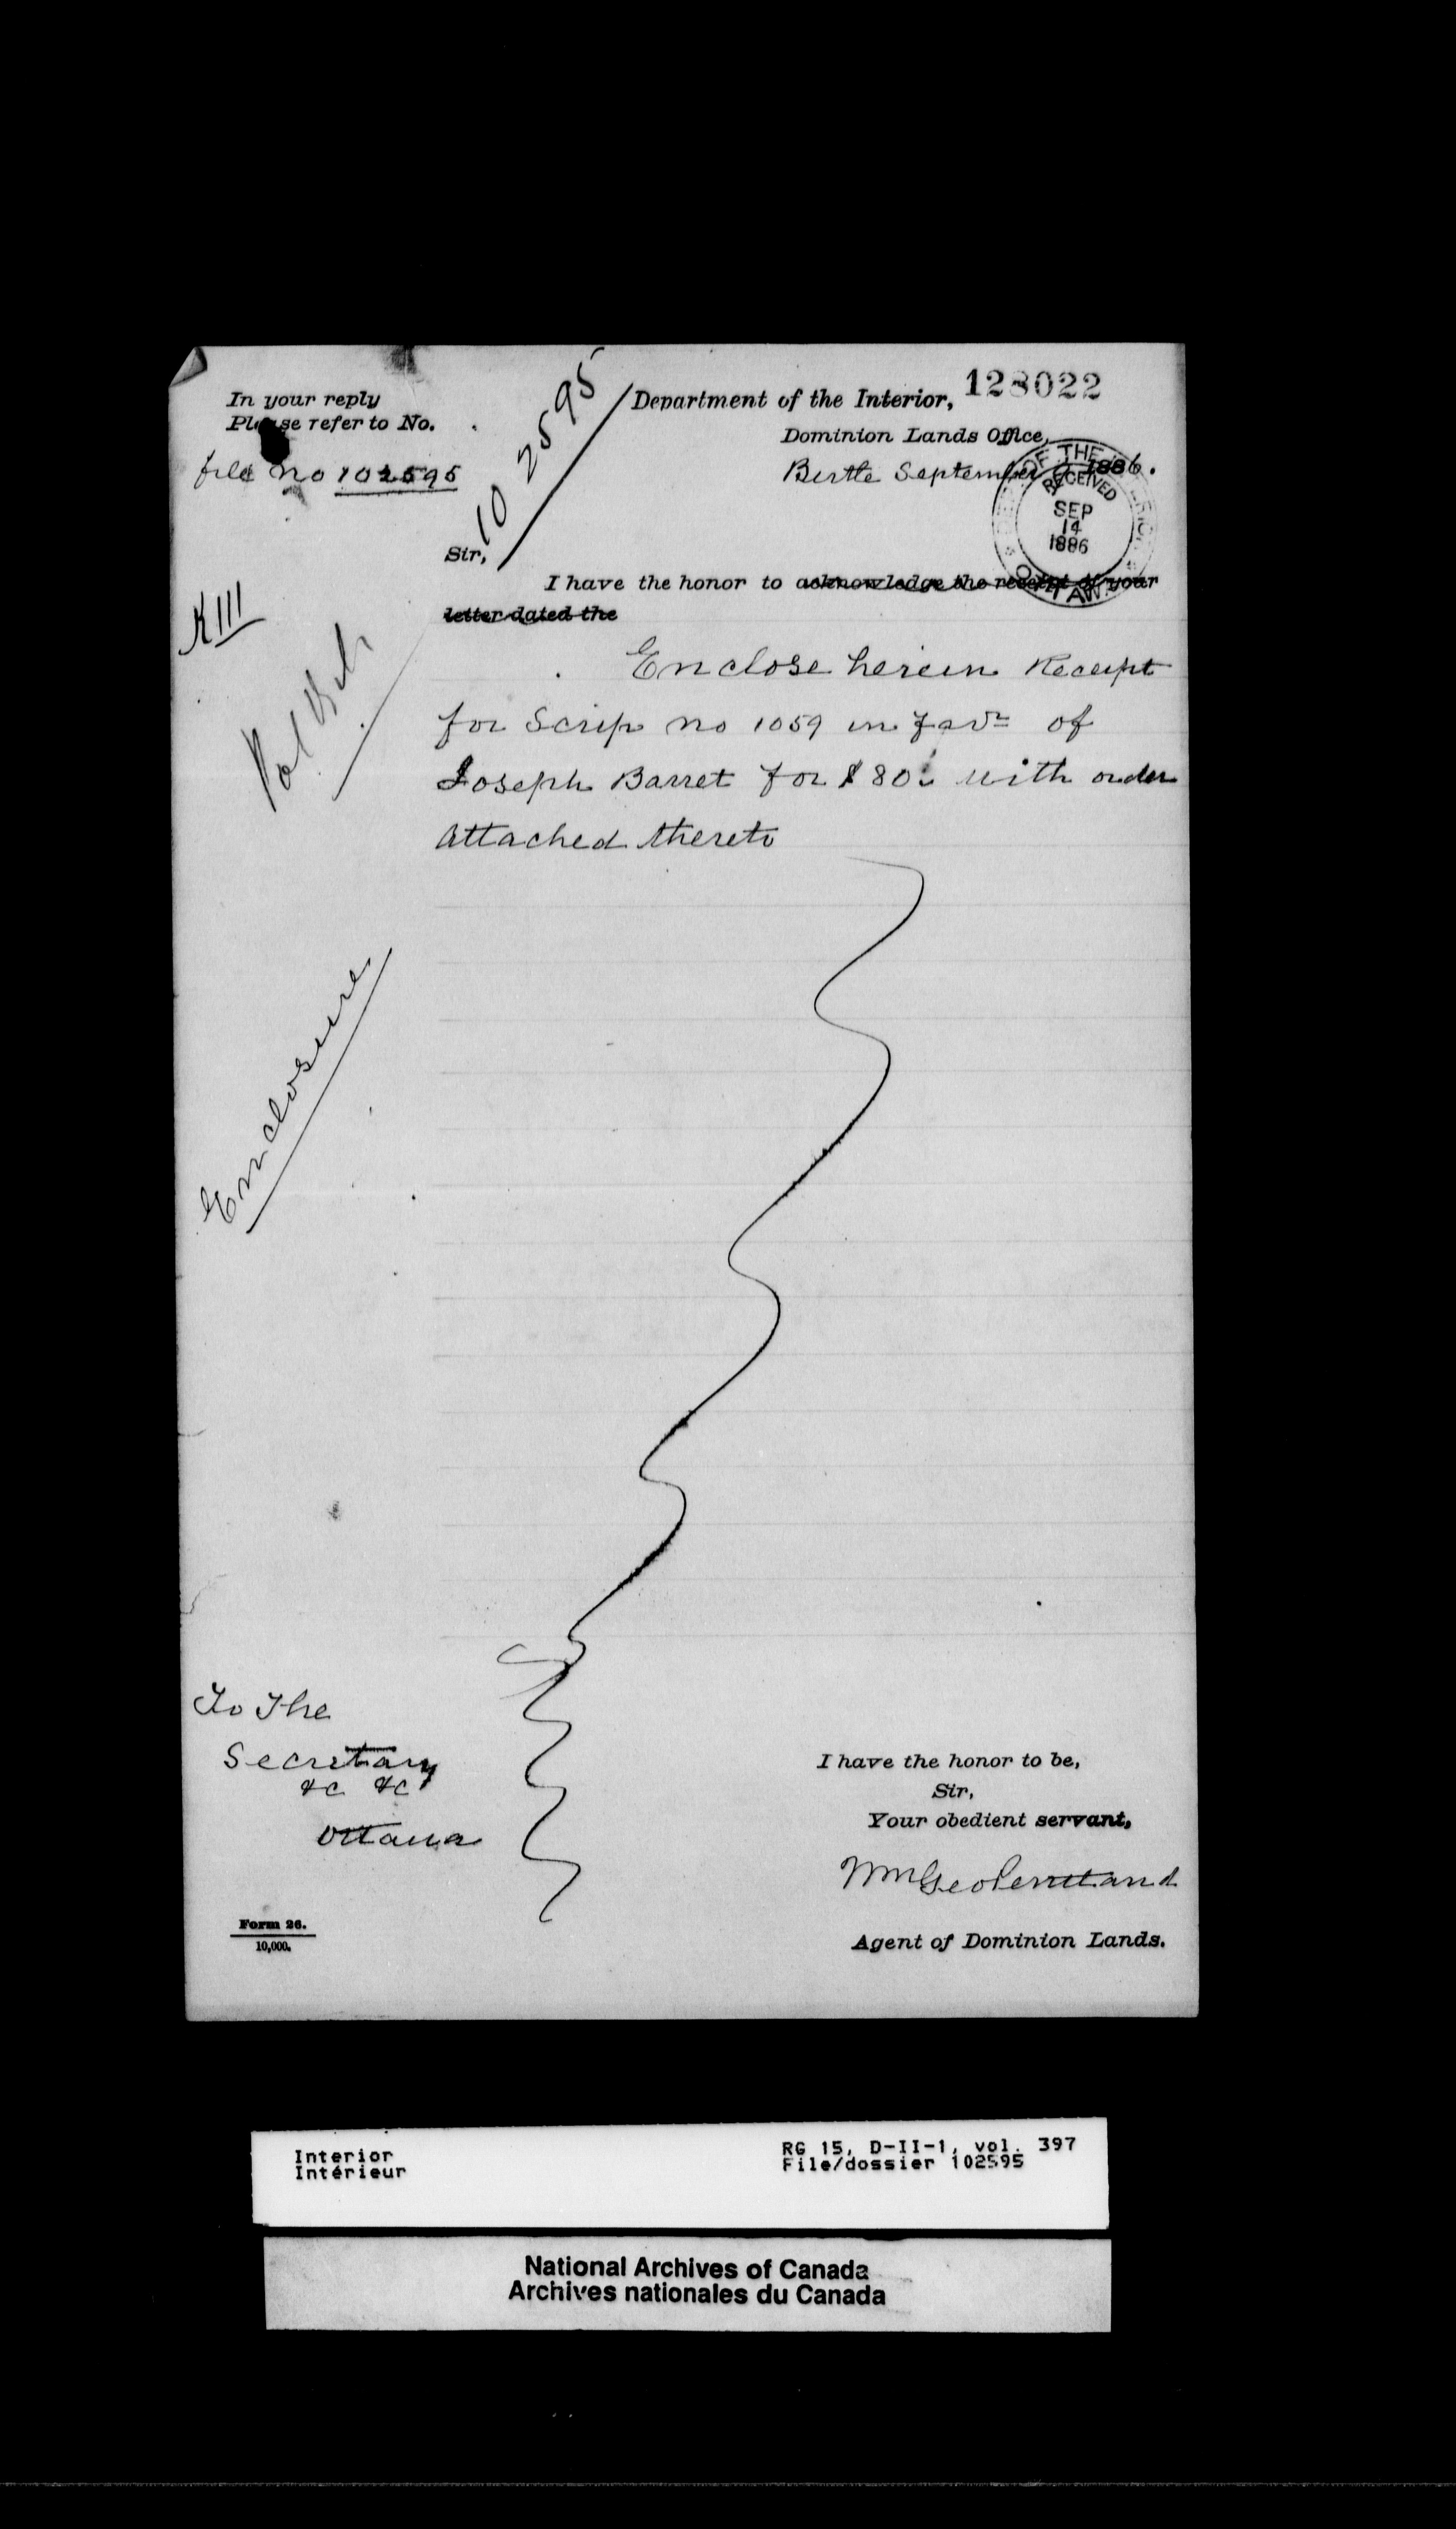 128022
In your reply
Please refer to No.
file no 102595
10 2595
Department of the Interior,
Dominion Lands Office,
Birtle September 9 1886.
DEPT OF THE INTERIOR
RECEIVED
SEP
14
1886
OTTAWA
Sir,
I have the honor to acknowledge the receipt of your
letter dated the
KIII
Enclose herein Receipt
for Scrip no 1059 in favr of
Joseph Barret for $80. with order
attached thereto
Enclosure
To The
Secretary
&c &c
Ottawa
I have the honor to be,
Sir,
Your obedient servant,
Wm Geo Pentland
Agent of Dominion Lands.
Form 26.
10,000.
Interior
Intérieur
RG 15, D-II-1, vol. 397
File/dossier 102595
National Archives of Canada
Archives nationales du Canada